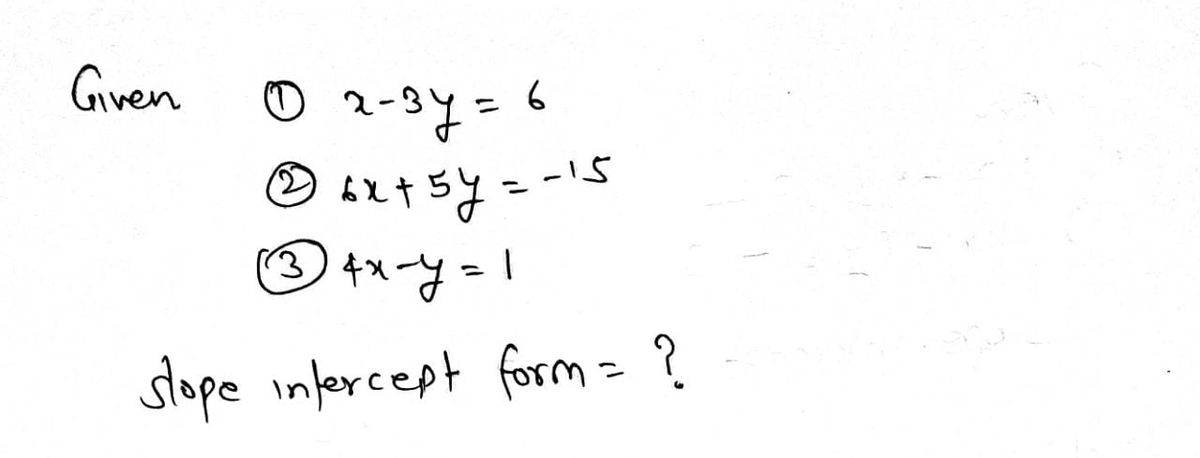 Given ① x-3y = 6
② 6x+5y = -15
③ 4x-y = 1
slope intercept form = ?